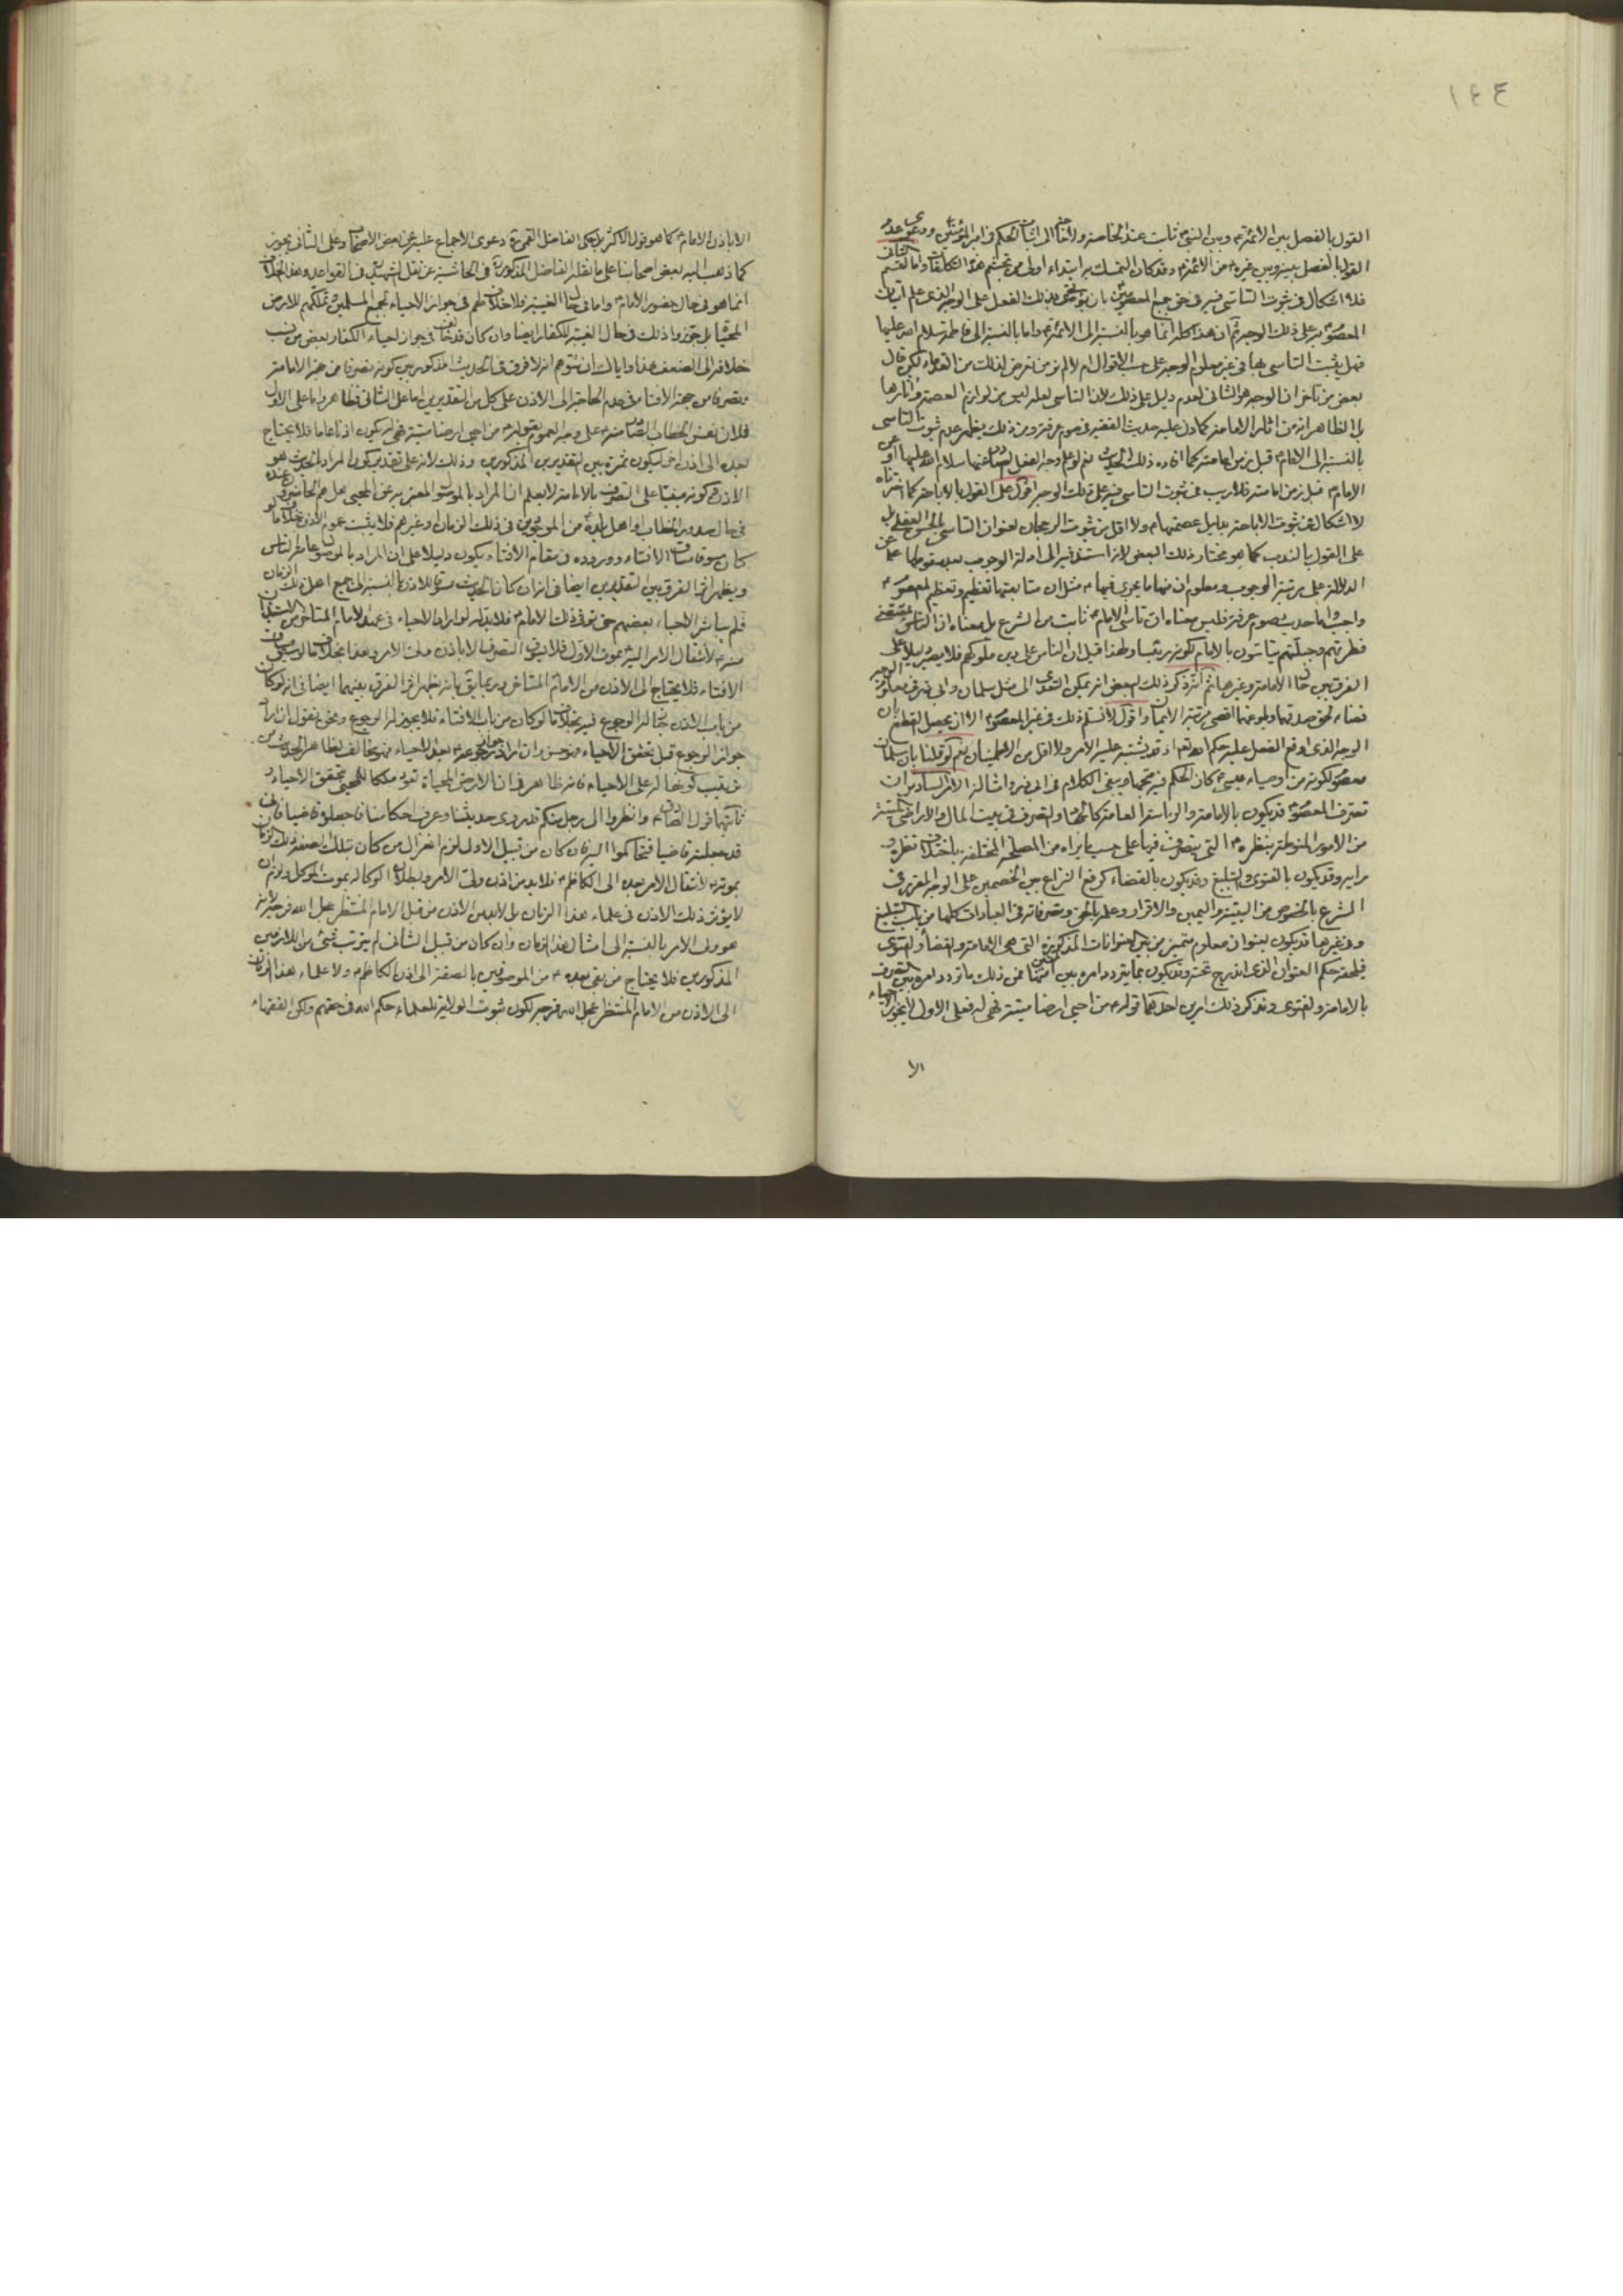 ١٤٤
القول بالفصل بين الائمة وبين النبي ثابت عند الخاصة
القول بالفصل بينه وبين غيره من الائمة وقد كان التمسك به ابتداء اولى من تجشم هذه التكلفات واما القسم الثاني
فلا اشكال في ثبوت التاسي فيه في حق جميع المعصومين بان يؤتى بذلك الفعل على الوجه الذي علم اتيان
المعصوم به على ذلك الوجه ثم ان هذا كله انما هو بالنسبة الى الائمة واما بالنسبة الى فاطمة سلام الله عليها
فهل يثبت التاسي بها في غير معلوم الوجه على حسب الاقوال ام لا لم نر من تعرض لذلك من القدماء لكن قال
بعض من تاخر ان الوجه هو الثاني لعدم دليل على ذلك لان التاسي لعله ليس من لوازم العصمة واثارها
بل الظاهر انه من اثار الامامة كما دل عليه حديث الفقيه في صوم عرفة ومن ذلك يظهر عدم ثبوت التاسي
بالنسبة الى الامام قبل زمن امامته كما افاده ذلك الحديث نعم لو علم وجه الفعل
الامام قبل زمن امامته فلا ريب في ثبوت التاسي فيه على ذلك الوجه اقول على القول بالاباحة كما اخترناه
لا اشكال في ثبوت الاباحة بدليل عصمتهما ولا اقل من ثبوت الرجحان لعنوان التاسي
على القول بالندب كما هو مختار ذلك البعض لانه استند فيه الى ادلة الوجوب بعد صرفها عن
الدلالة على مرتبة الوجوب ومعلوم ان منها ما يجري فيهما مثل ان متابعتهما تعظيم وتعظيم المعصوم
واجب واما حديث صوم عرفة فليس معناه ان تاسي الامام ثابت من الشرع بل معناه ان الناس بمقتضى
فطرتهم وجبلتهم يتاسون بالامام لكونه رئيسا ولهذا قيل ان الناس على دين ملوكهم فلا يصير دليلا على
الفرق بين حال الامامة وغيرها ثم انه ذكر ذلك البعض انه يمكن التعدي الى مثل سلمان وابي ذر في معلوم الوجه
قضاء لحق صدقهما وبلوغهما اقصى مرتبة الايمان واقول لا نسلم ذلك في غير المعصوم الا ان يحصل القطع بان
الوجه الذي اوقع الفعل عليه حكم الله تعالى اذ قد يشتبه عليه الامر ولا اقل من الاطمينان نعم لو قلنا بان سلمان
معصوم لكونه من اوصياء عيسى كان الحكم فيه متجها ويبقى الكلام في ابي ذر وامثاله الامر السادس ان
تصرف المعصوم قد يكون بالامامة والرياسة العامة كالجهاد والتصرف في بيت المال والاراضي الميتة
من الامور المنوطة بنظره التي يتصرف فيها على حسب ما يراه من المصلحة المختلفة باختلاف نظره و
رايه وقد يكون بالفتوى والتبليغ وقد يكون بالقضاء كرفع النزاع بين الخصمين على الوجه المقرر في
الشرع بالخصوص من البينة واليمين والاقرار وعلمه بالحق وتصرفاته في العبادات كلها من باب التبليغ
وفي غيرها قد يكون بعنوان معلوم متميز من بين العنوانات المذكورة التي هي الامامة والقضاء والفتوى
فيلحقه حكم العنوان الذي اندرج تحته وقد يكون مما يتردد امره بين اثنين منها فمن ذلك ما تردد امره بين التصرف
بالامامة والفتوى وقد ذكر ذلك امرين احدهما قوله من احيى ارضا ميتة فهي له فعلى الاول لا يجوز الاحياء
الا
الا باذن الامام كما هو قول الاكثر بل حكى الفاضل القمي دعوى الاجماع عليه عن بعض الاصحاب وعلى الثاني يجوز
كما ذهب اليه بعض اصحابنا على ما نقله الفاضل المذكور في الحاشية عن نقل الشهيد في القواعد وهذا الخلاف
انما هو في حال حضور الامام واما في حال الغيبة فلا خلاف لهم في جواز الاحياء لجميع المسلمين وتملكهم للارض
المحياة بل جوزوا ذلك في حال الغيبة للكفار ايضا وان كان قد خالف في جواز احياء الكفار بعض من نسب
خلافه الى الضعف هذا واياك ان تتوهم انه لا فرق في الحديث المذكور بين كونه تصرفا من جهة الامامة
وتصرفا من جهة الافتاء في عدم الحاجة الى الاذن على كل من التقديرين اما على الثاني فظاهر واما على الاول
فلان نفس الخطاب الصادر منه على وجه العموم بقوله من احيى ارضا ميتة فهي له يكون اذنا عاما فلا يحتاج
بعده الى اذن اخر ليكون ثمرة بين التقديرين المذكورين وذلك لانه على تقدير كون المراد بالحديث هو
الاذن في كونه مبنيا على التصرف بالامامة لا يعلم ان المراد بالموصول المعبر به عن المحيي هل هم الحاضرون عنده
في حال صدور الخطاب او اهل بلده من الموجودين في ذلك الزمان او غيرهم فلا يثبت عموم الاذن بخلاف ما لو
كان مسوقا مساق الافتاء وروده في مقام الافتاء يكون دليلا على ان المراد بالموصول عامة الناس
ويظهر اثر الفرق بين التقديرين ايضا في انه ان كان الحديث مسوقا للاذن بالنسبة الى جميع اهل ذلك الزمان
فلم يباشر الاحياء بعضهم حتى توفي ذلك الامام فلا بد له لو اراد الاحياء في عهد الامام المتاخر من
منه لانتقال الامر اليه بموت الاول فلا يجوز التصرف الا باذن ولي الامر وهذا بخلاف ما لو
الافتاء فلا يحتاج الى الاذن من الامام المتاخر وربما يقال بانه يظهر اثر الفرق بينهما ايضا في انه لو كان
من باب الاذن جاز له الرجوع فيه بخلاف ما لو كان من باب الافتاء فلا يجوز له الرجوع ونحن نقول ان اراد
جواز الرجوع قبل تحقق الاحياء فهو حسن وان اراد جواز رجوعه بعد الاحياء فهو مخالف لظاهر الحديث من
ترتيب كونها له على الاحياء فانه ظاهر في ان الارض المحياة تعود ملكا للمحيي بتحقق الاحياء و
ثانيهما قول الصادق وانظروا الى رجل منكم قد روى حديثنا وعرف احكامنا فاجعلوه قاضيا فاني
قد جعلته قاضيا فتحاكموا اليه فان كان من قبيل الاول لزم انعزال من كان بتلك الصفة في ذلك الزمان
بموته لانتقال الامر بعده الى الكاظم فلا بد من اذن ولي الامر ولبطلان الوكالة بموت الموكل ولزم ان
لا يؤثر ذلك الاذن في علماء هذا الزمان بل لا بد من الاذن من قبل الامام المنتظر عجل الله فرجه لانه
هو ولي الامر بالنسبة الى امثال هذا الزمان وان كان من قبيل الثاني لم يترتب شيء من اللازمين
المذكورين فلا يحتاج من بقي بعده من الموصوفين بالصفة الى اذن الكاظم ولا علماء هذا الزمان
الى الاذن من الامام المنتظر عجل الله فرجه لكون ثبوت الولاية للعلماء حكم الله في حقهم ولكن الفقهاء